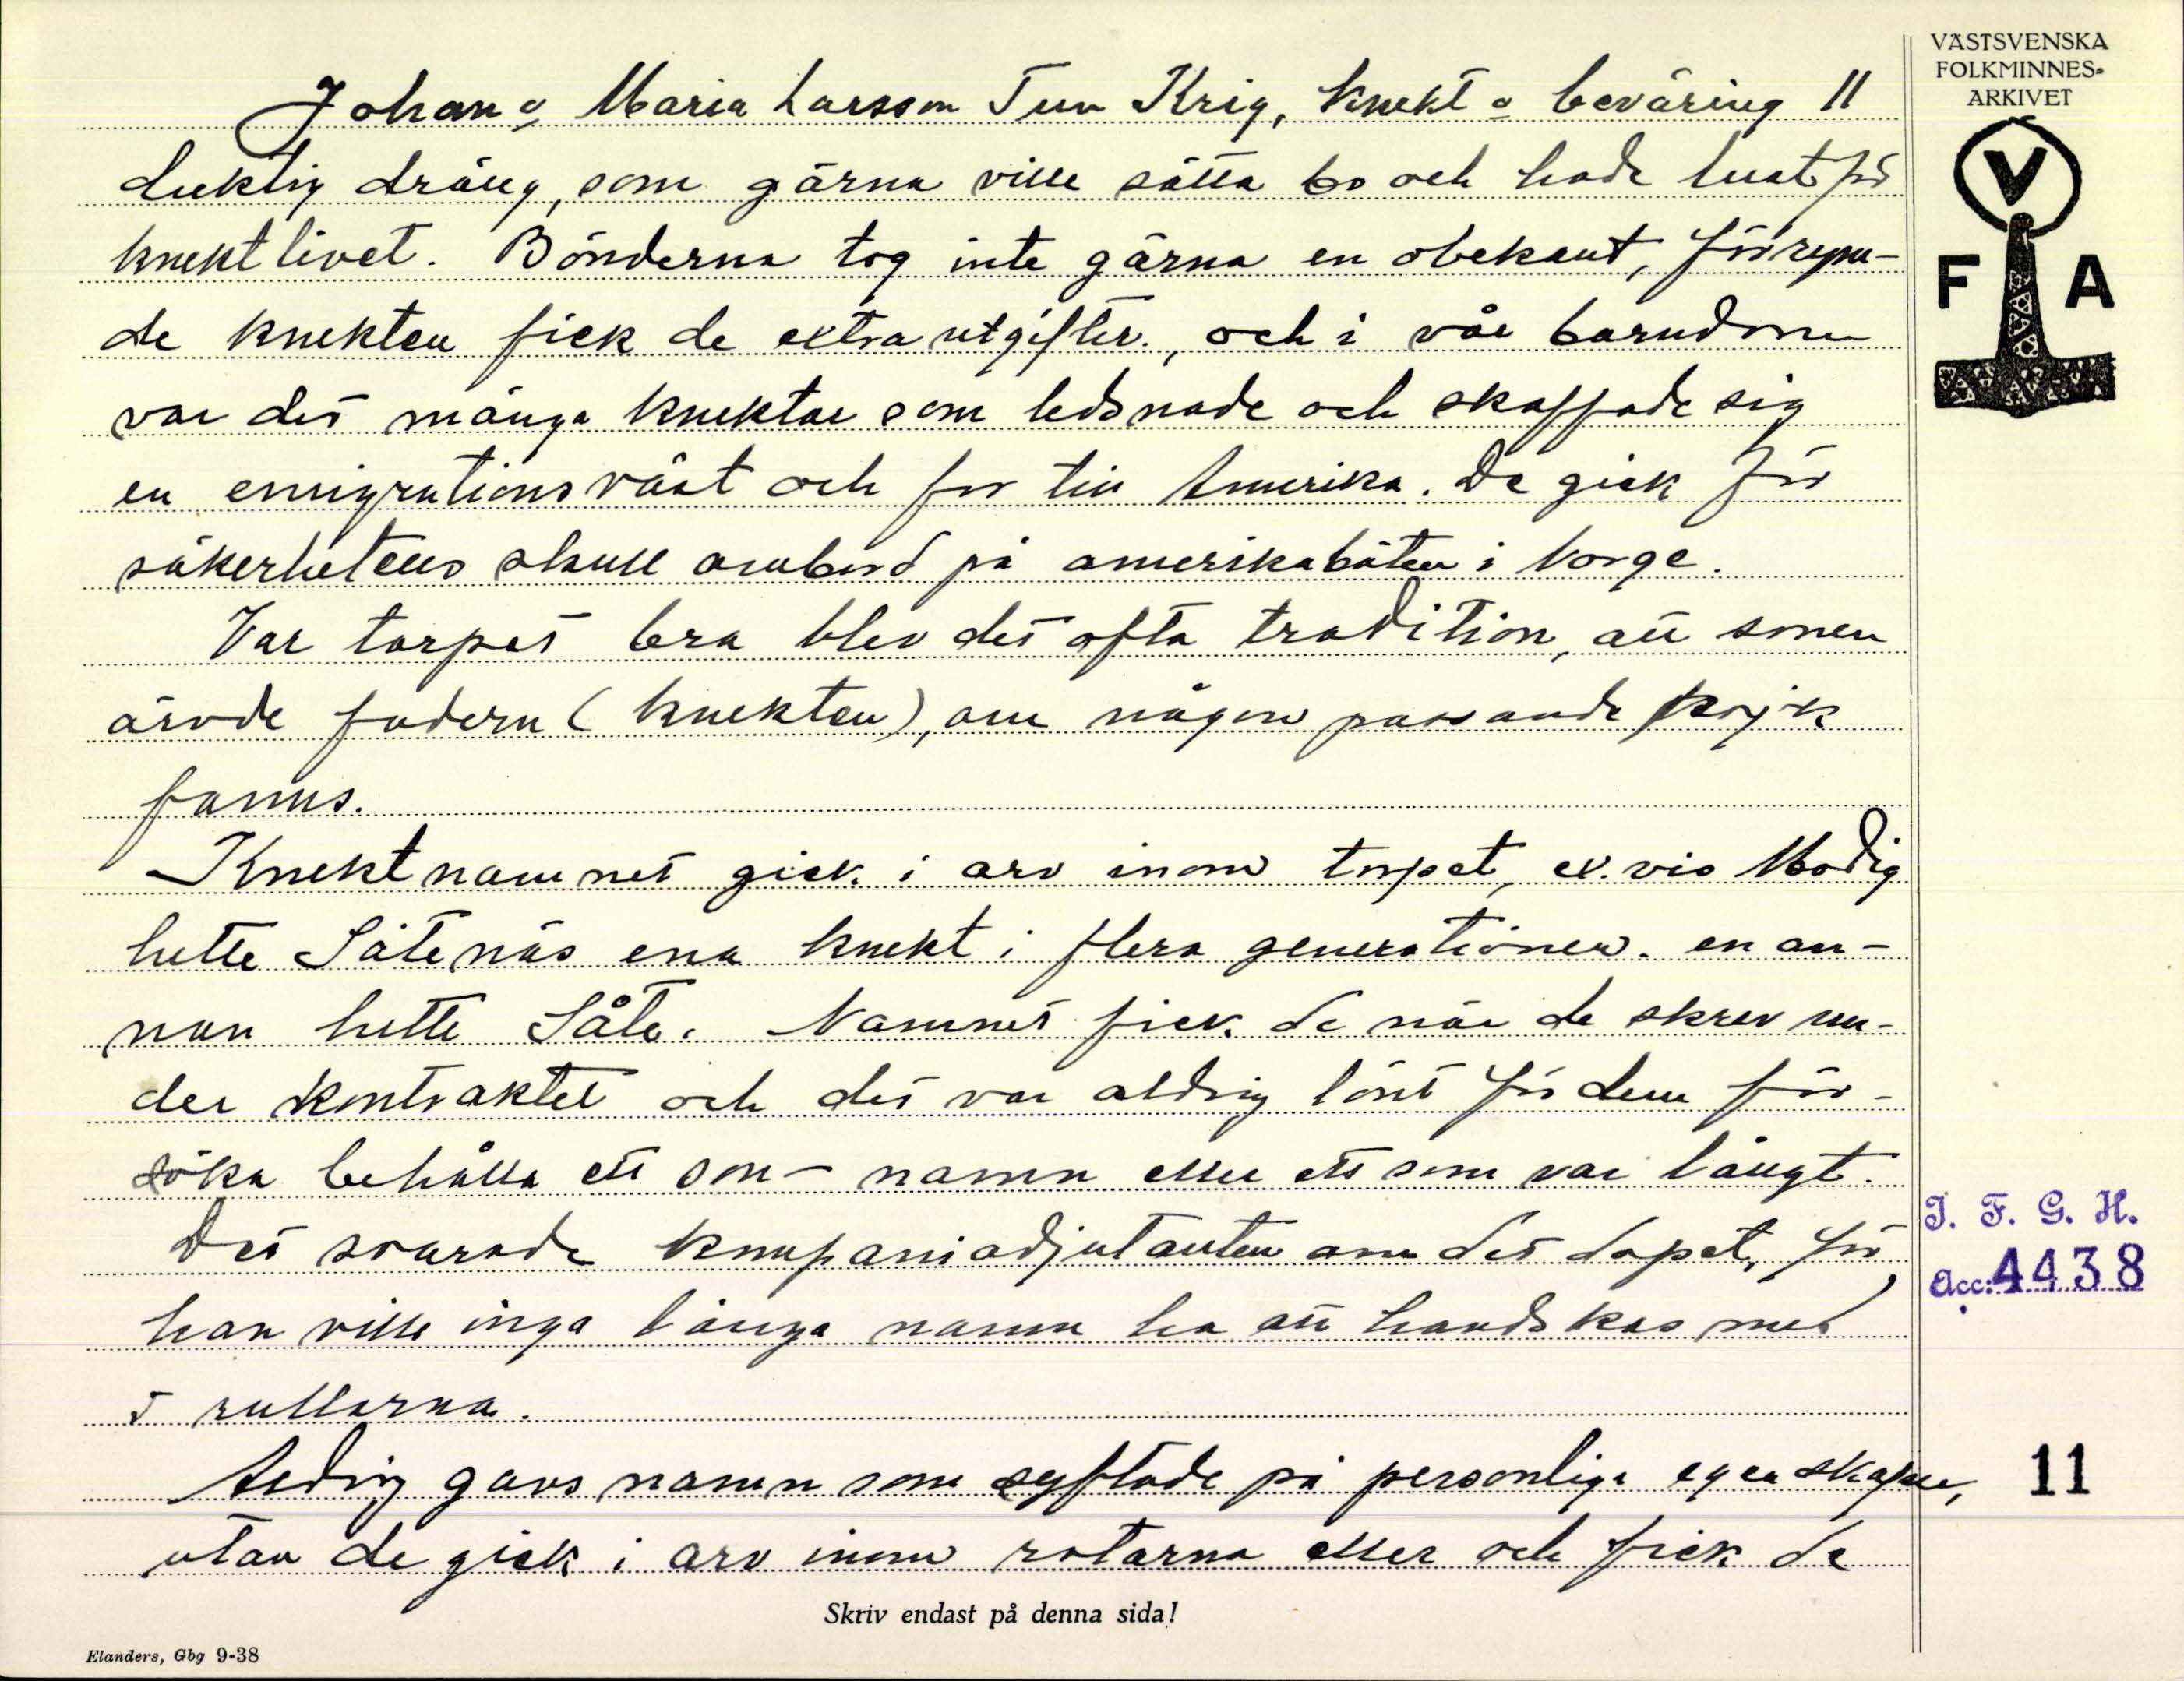 VÄSTSVENSKA
FOLKMINNES-
ARKIVET
V
F A
Johan o Maria Larsson Tun Krig, knekt o beväring 11
duktig dräng, som gärna ville sätta bo och hade lust på
knektlivet. Bönderna tog inte gärna en obekant, för rym-
de knekten fick de extra utgifter, och i vår barndom
var det många knektar som ledsnade och skaffade sig
en emigrationsväst och for till Amerika. De gick för
säkerhetens skull ombord på amerikabåten i Norge.
Var torpet bra blev det ofta tradition, att sonen
ärvde fadern (knekten), om någon passande pojk
fanns.
Knektnamnet gick i arv inom torpet, ex.vis Modig
hette Såtenäs ena knekt i flera generationer. en an-
nan hette Såte. Namnet fick de när de skrev un-
der kontraktet och det var aldrig lönt för dem för-
söka behålla ett son- namn eller ett som var långt.
Det svarade kompaniadjutanten om det dopet, för
han ville inga långa namn ha att handskas med
i rullorna.
Aldrig gavs namn som syftade på personliga egenskaper,
utan de gick i arv inom rotarna eller och fick de
I. F. G. H.
Acc: 4438
11
Skriv endast på denna sida!
Elanders, Gbg 9-38